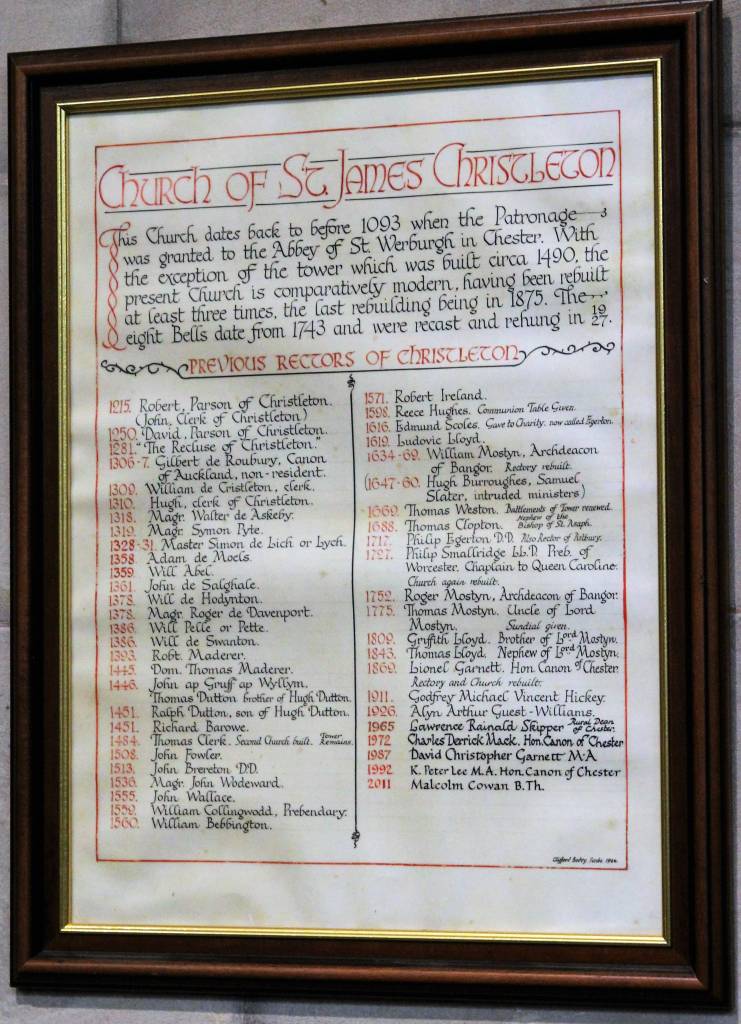 Church of St. James Christleton
This Church dates back to before 1093 when the Patronage
was granted to the Abbey of St. Werburgh in Chester. With
the exception of the tower which was built circa 1490, the
present Church is comparatively modern, having been rebuilt
at least three times, the last rebuilding being in 1875. The
eight Bells date from 1743 and were recast and rehung in 1927.
PREVIOUS RECTORS OF CHRISTLETON
1215. Robert, Parson of Christleton.
(John, Clerk of Christleton)
1250. David, Parson of Christleton.
1281. "The Recluse of Christleton."
1306-7. Gilbert de Roubury, Canon
of Auckland, non-resident.
1309. William de Cristleton, clerk.
1310. Hugh, clerk of Christleton.
1318. Magr. Walter de Askeby.
1319. Magr. Symon Pyte.
1328-31. Master Simon de Lich or Lych.
1358. Adam de Moels.
1359. Will Abel.
1361. John de Salghale.
1378. Will de Hodynton.
1378. Magr. Roger de Davenport.
1386. Will Pelle or Pette.
1386. Will de Swanton.
1393. Robt. Maderer.
1445. Dom. Thomas Maderer.
1446. John ap Gruff ap Wyllym.
Thomas Dutton brother of Hugh Dutton.
1451. Ralph Dutton, son of Hugh Dutton.
1451. Richard Barowe.
1484. Thomas Clerk. Second Church built. Tower Remains.
1508. John Fowler.
1513. John Brereton D.D.
1536. Magr. John Wodeward.
1555. John Wallace.
1559. William Collingwodd, Prebendary.
1560. William Bebbington.
1571. Robert Ireland.
1598. Reece Hughes. Communion Table Given.
1616. Edmund Scoles. Gave to Charity. now called Egerton.
1619. Ludovic Lloyd.
1634-69. William Mostyn, Archdeacon
of Bangor. Rectory rebuilt.
(1647-60. Hugh Burroughes, Samuel
Slater, intruded ministers)
1669. Thomas Weston. Battlements of Tower renewed.
1688. Thomas Clopton. Nephew of the Bishop of St. Asaph.
1717. Philip Egerton D.D. Also Rector of Astbury.
1727. Philip Smallridge LL.D. Preb. of
Worcester. Chaplain to Queen Caroline.
Church again rebuilt.
1752. Roger Mostyn, Archdeacon of Bangor.
1775. Thomas Mostyn. Uncle of Lord
Mostyn. Sundial given.
1809. Griffith Lloyd. Brother of Lord Mostyn.
1843. Thomas Lloyd. Nephew of Lord Mostyn.
1869. Lionel Garnett. Hon. Canon of Chester
Rectory and Church rebuilt.
1911. Godfrey Michael Vincent Hickey.
1926. Alyn Arthur Guest-Williams.
1965 Lawrence Rainald Skipper Rural Dean of Chester.
1972 Charles Derrick Mack. Hon. Canon of Chester
1987 David Christopher Garnett M·A
1992 K. Peter Lee M.A. Hon. Canon of Chester
2011 Malcolm Cowan B.Th.
Clifford Scribe